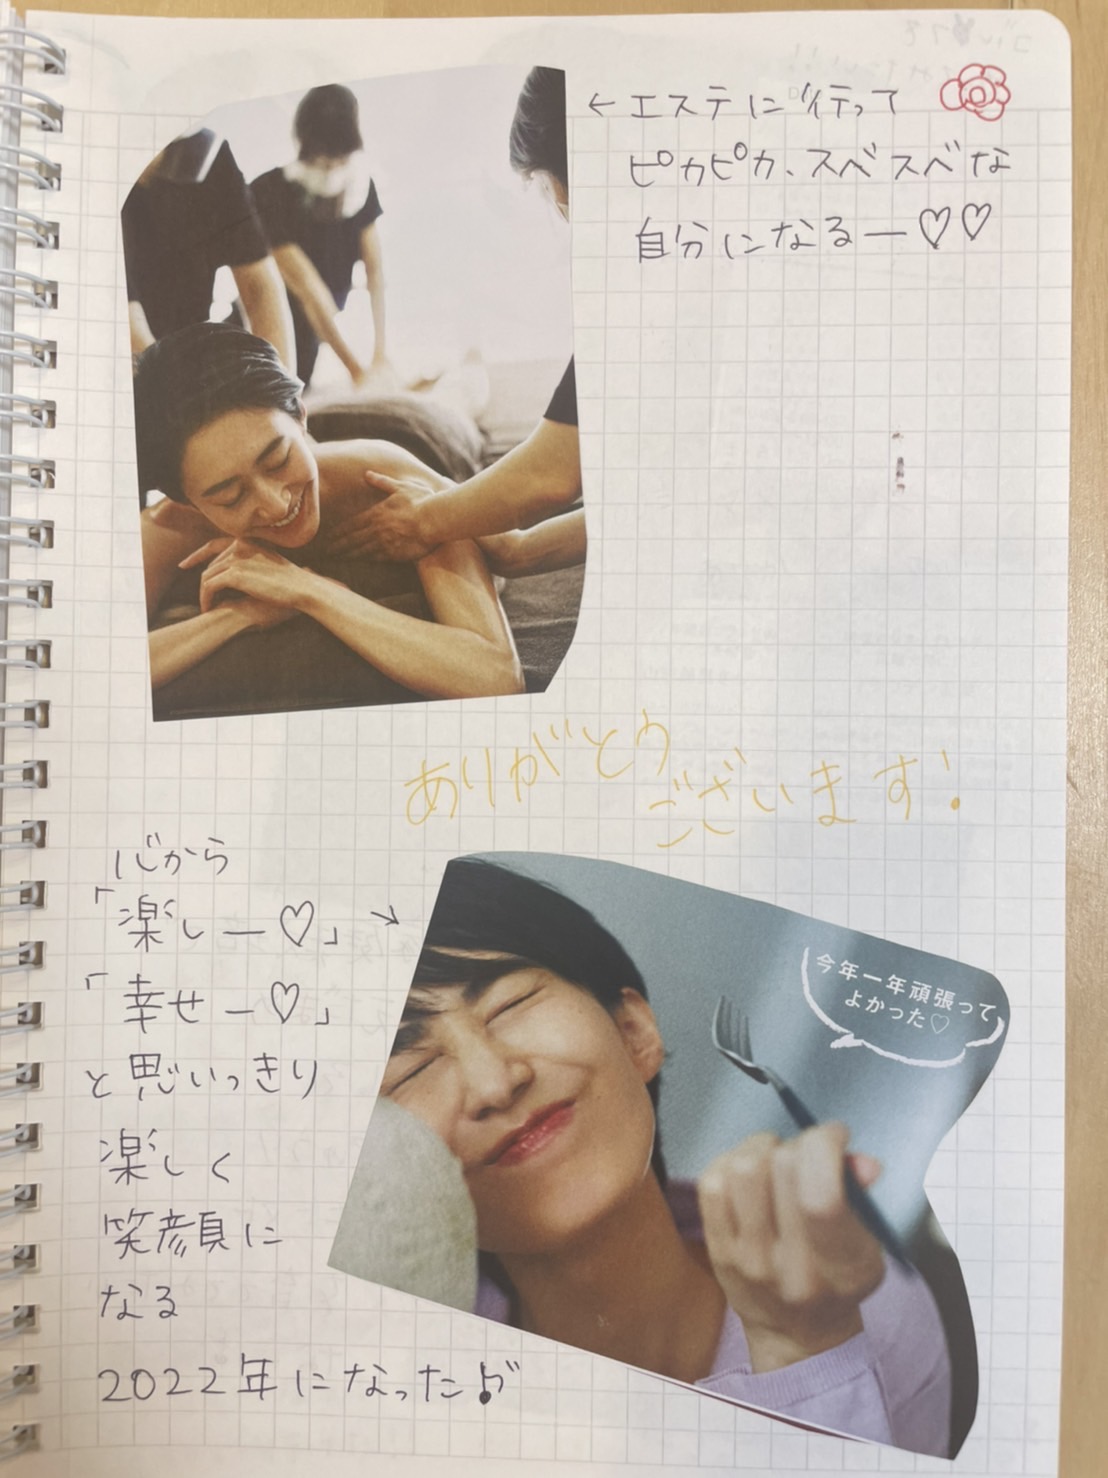 ←エステに行って
ピカピカ、スベスベな
自分になるー♡♡
ありがとう
ございます!
心から
「楽しー♡」→
「幸せー♡」
と思いっきり
楽しく
笑顔に
なる
2022年になった♪
今年一年頑張って
よかった♡